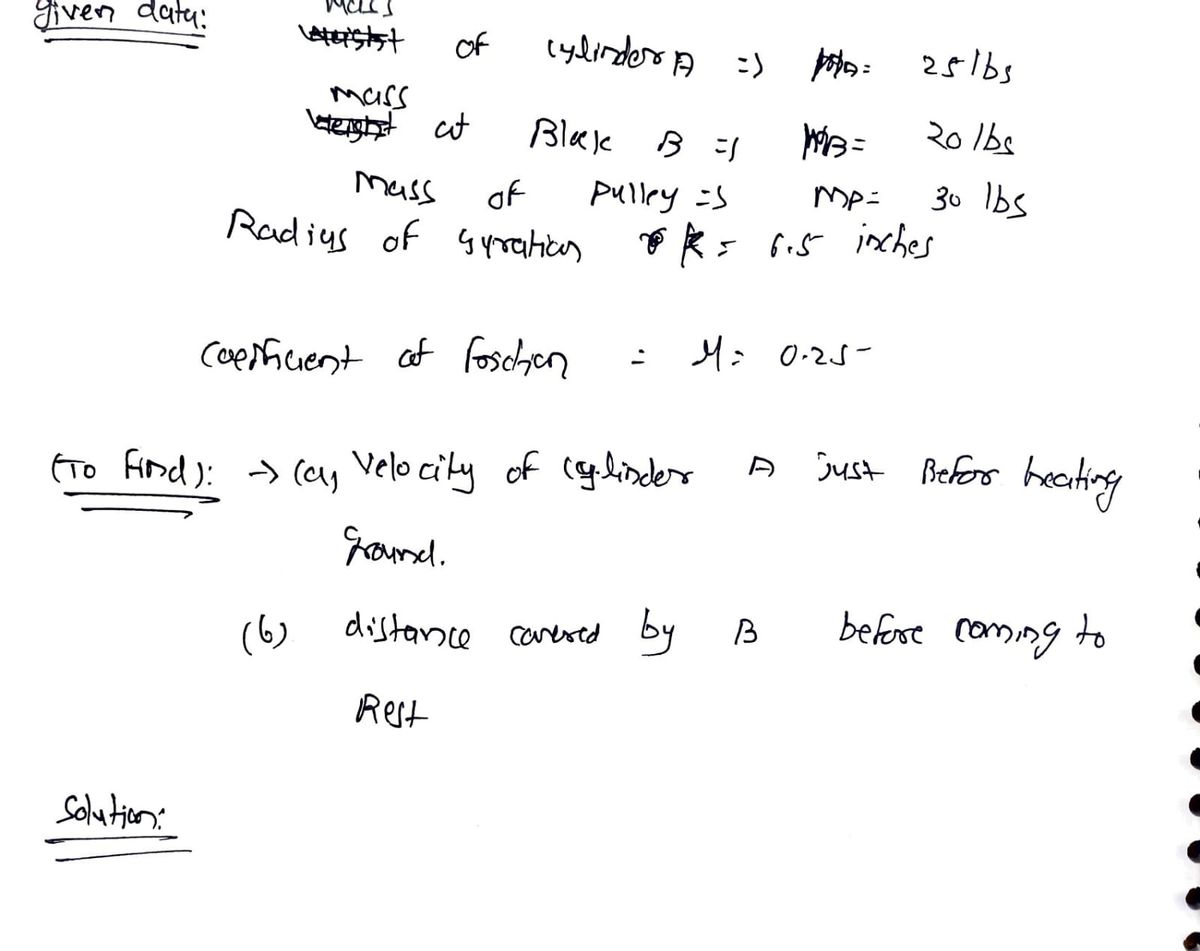 given data:
mass
of cylinder A => mA= 25 lbs
mass
Weight of Block B => mB= 20 lbs
Mass of pulley => mP= 30 lbs
Radius of Gyration k = 6.5 inches
Coefficient of friction = μ= 0.25
(To find): → (a) Velocity of cylinder A just Befor heating
ground.
(b) distance covered by B before coming to
Rest
Solution: